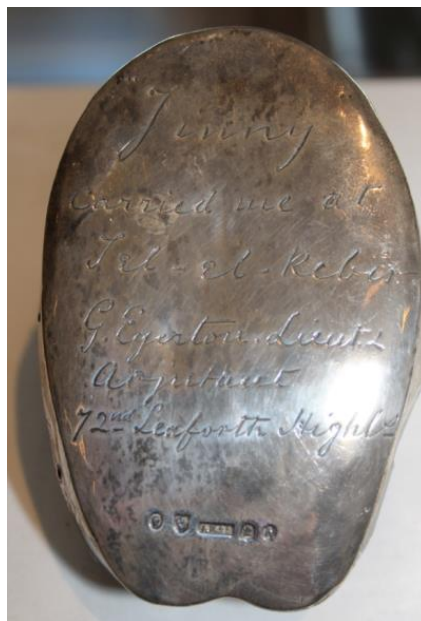 Jinny
carried me at
Tel-el-Kebir
G. Egerton. Lieut &
Adjutant
72nd Seaforth Highlrs